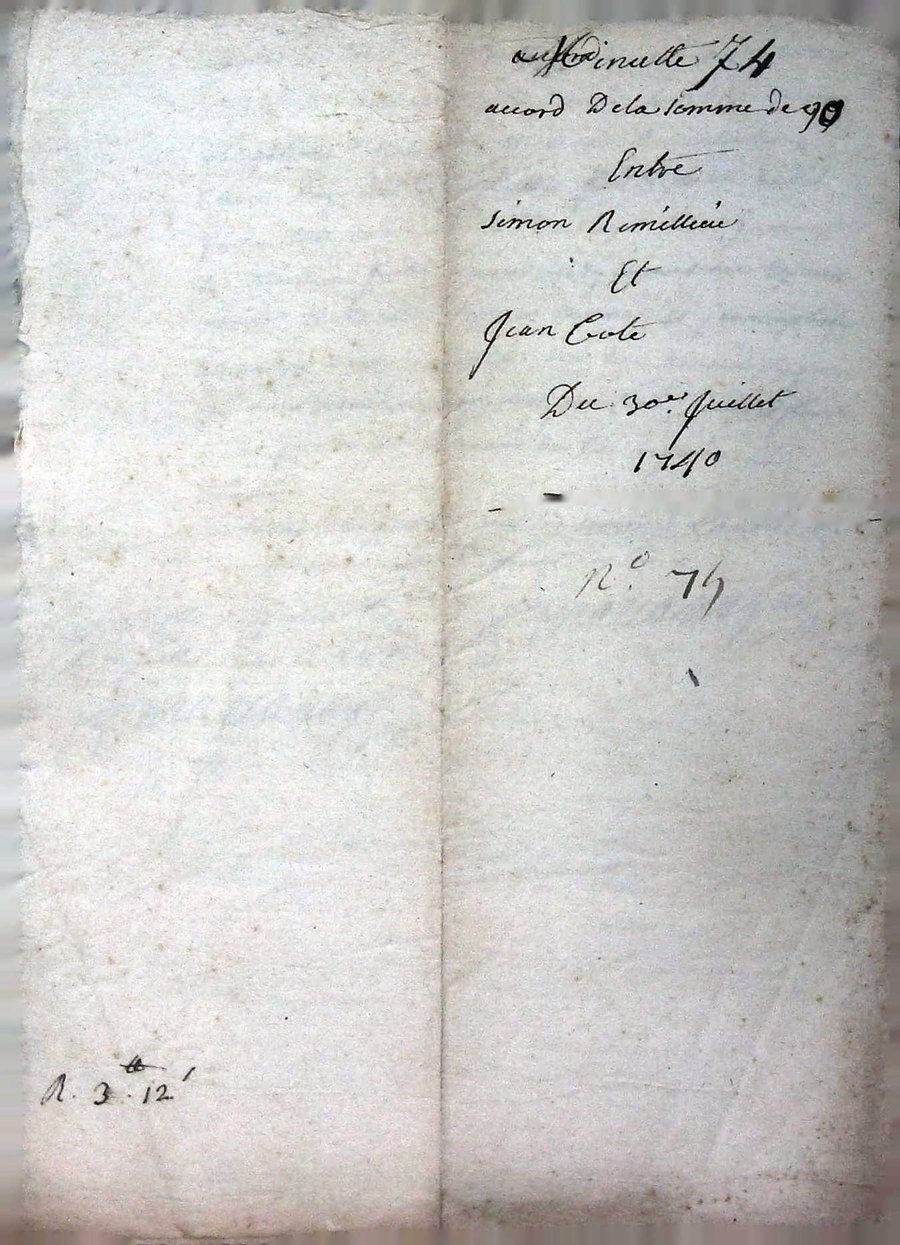 74
accord De la somme de 90
Entre
Simon Remillieu
Et
Jean Cote
Du 30e Juillet
1740
No. 74
R. 3 tt. 12 s